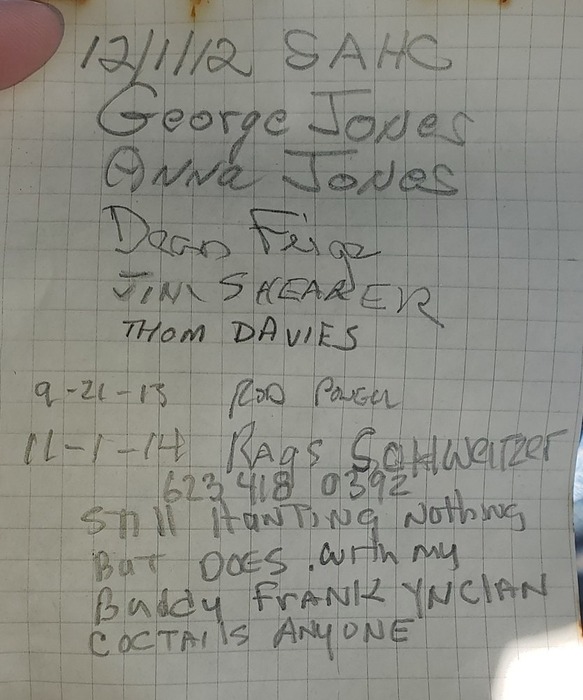 12/1/12 SAHC
George Jones
Anna Jones
Dean
JIM SHEARER
THOM DAVIES
9-21-13 ROD POWELL
11-1-14 RAgs SCHWeITZER
623 418 0392
STILL HuNTING NOTHING
BuT DOES .WITH MY
BuDDY FRANK
COCTAIlS ANYONE